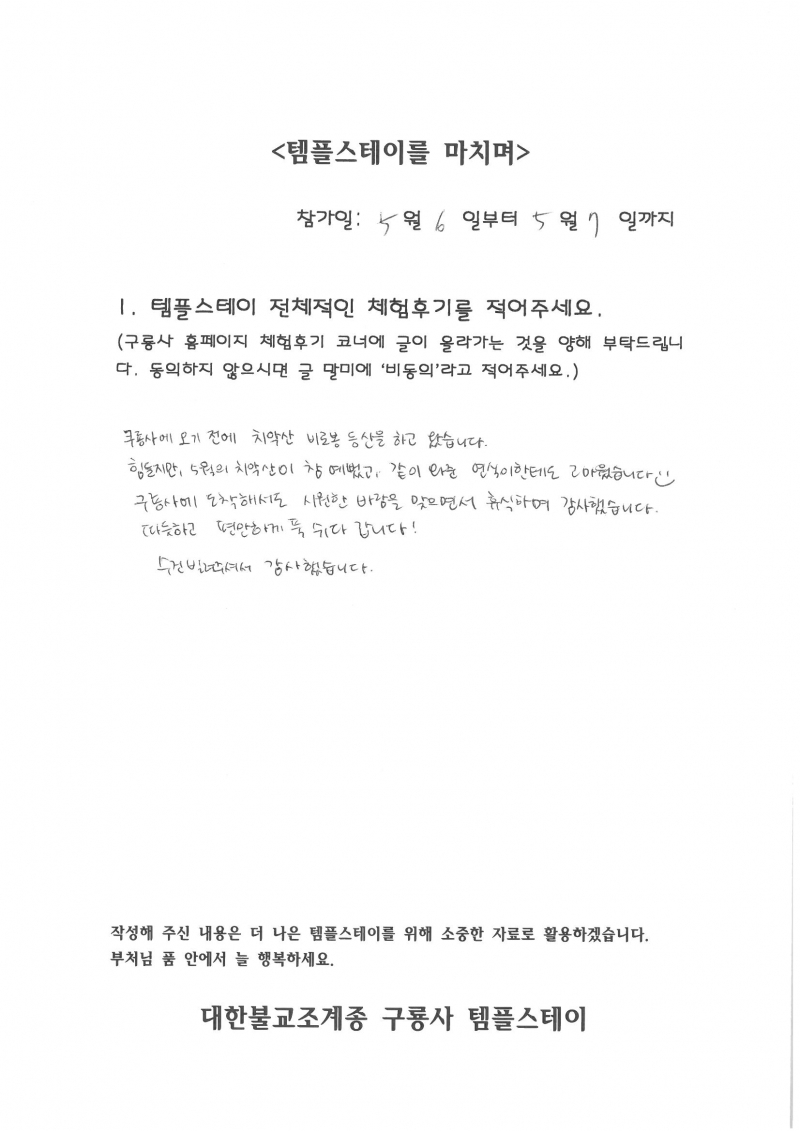 <템플스테이를 마치며>
참가일: 5월 6 일부터 5월 7 일까지
1. 템플스테이 전체적인 체험후기를 적어주세요.
(구룡사 홈페이지 체험후기 코너에 글이 올라가는 것을 양해 부탁드립니
다. 동의하지 않으시면 글 말미에 ‘비동의’라고 적어주세요.)
구룡사에 오기 전에 치악산 비로봉 등산을 하고 왔습니다.
힘들지만, 5월의 치악산이 참 예뻤고, 같이 와준 연식이한테도 고마웠습니다
구룡사에 도착해서도 시원한 바람을 맞으면서 휴식하며 감사했습니다.
따듯하고 편안하게 푹 쉬다 갑니다!
수건 빌려주셔서 감사했습니다.
작성해 주신 내용은 더 나은 템플스테이를 위해 소중한 자료로 활용하겠습니다.
부처님 품 안에서 늘 행복하세요.
대한불교조계종 구룡사 템플스테이